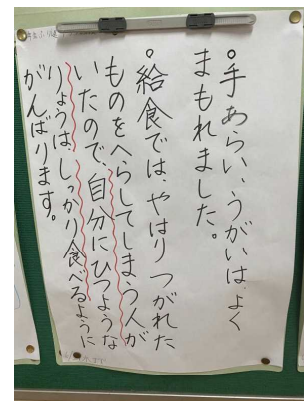 。手あらい、うがいは、よく
まもれました。
。給食では、やはりつがれた
ものをへらしてしまう人が
いたので、自分にひつような
りょうは、しっかり食べるように
がんばります。